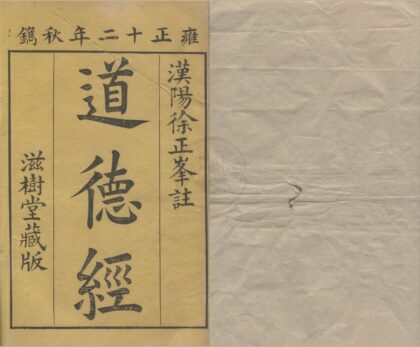 雍正十二年秋鐫
漢陽徐正峯註
道德經
滋樹堂藏版